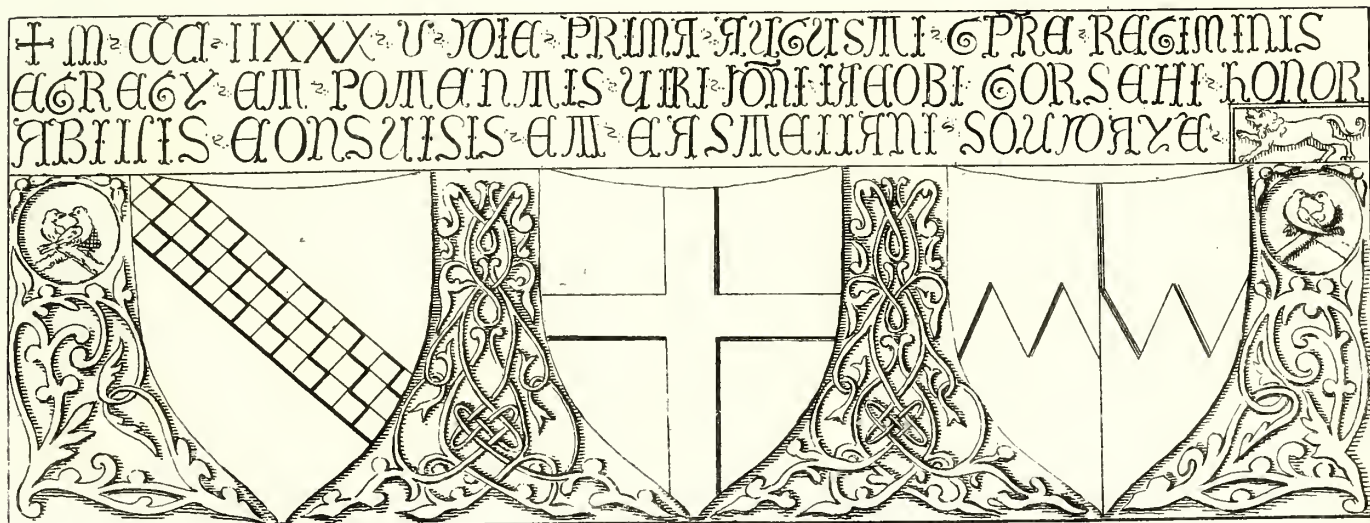 + M CCCL IIXXX V DIE PRIMA AUGUSTI TPRE REGIMINIS
EGREGY ET POTENTIS UIRI DONI IACOBI GORSEUI HONOR
ABILIS CONSULIS ET CASTELLANI SOLDAYE